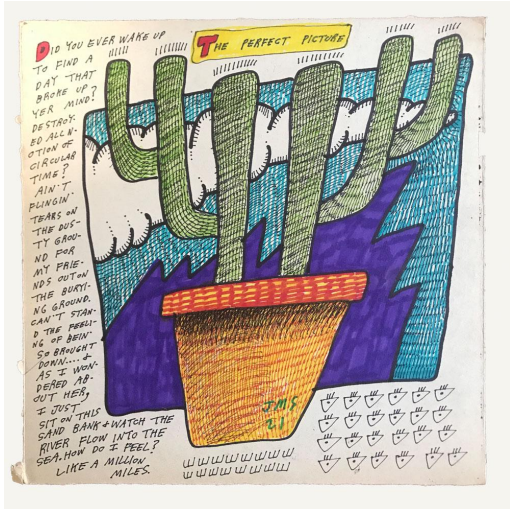 DID YOU EVER WAKE UP
TO FIND A
DAY THAT
BROKE UP
YER MIND?
DESTROY-
ED ALL N-
OTION OF
CIRCULAR
TIME?
AIN'T
FLINGIN'
TEARS ON
THE DUS-
TY GROU-
ND FOR
MY FRIE-
NDS OUT ON
THE BURYI-
NG GROUND.
CAN'T STAN-
D THE FEELI-
NG OF BEIN'
SO BROUGHT
DOWN.... &
AS I WON-
DERED AB-
OUT HER,
I JUST
SIT ON THIS
SAND BANK & WATCH THE
RIVER FLOW INTO THE
SEA. HOW DO I FEEL?
LIKE A MILLION
MILES.
THE PERFECT PICTURE
JMS
21